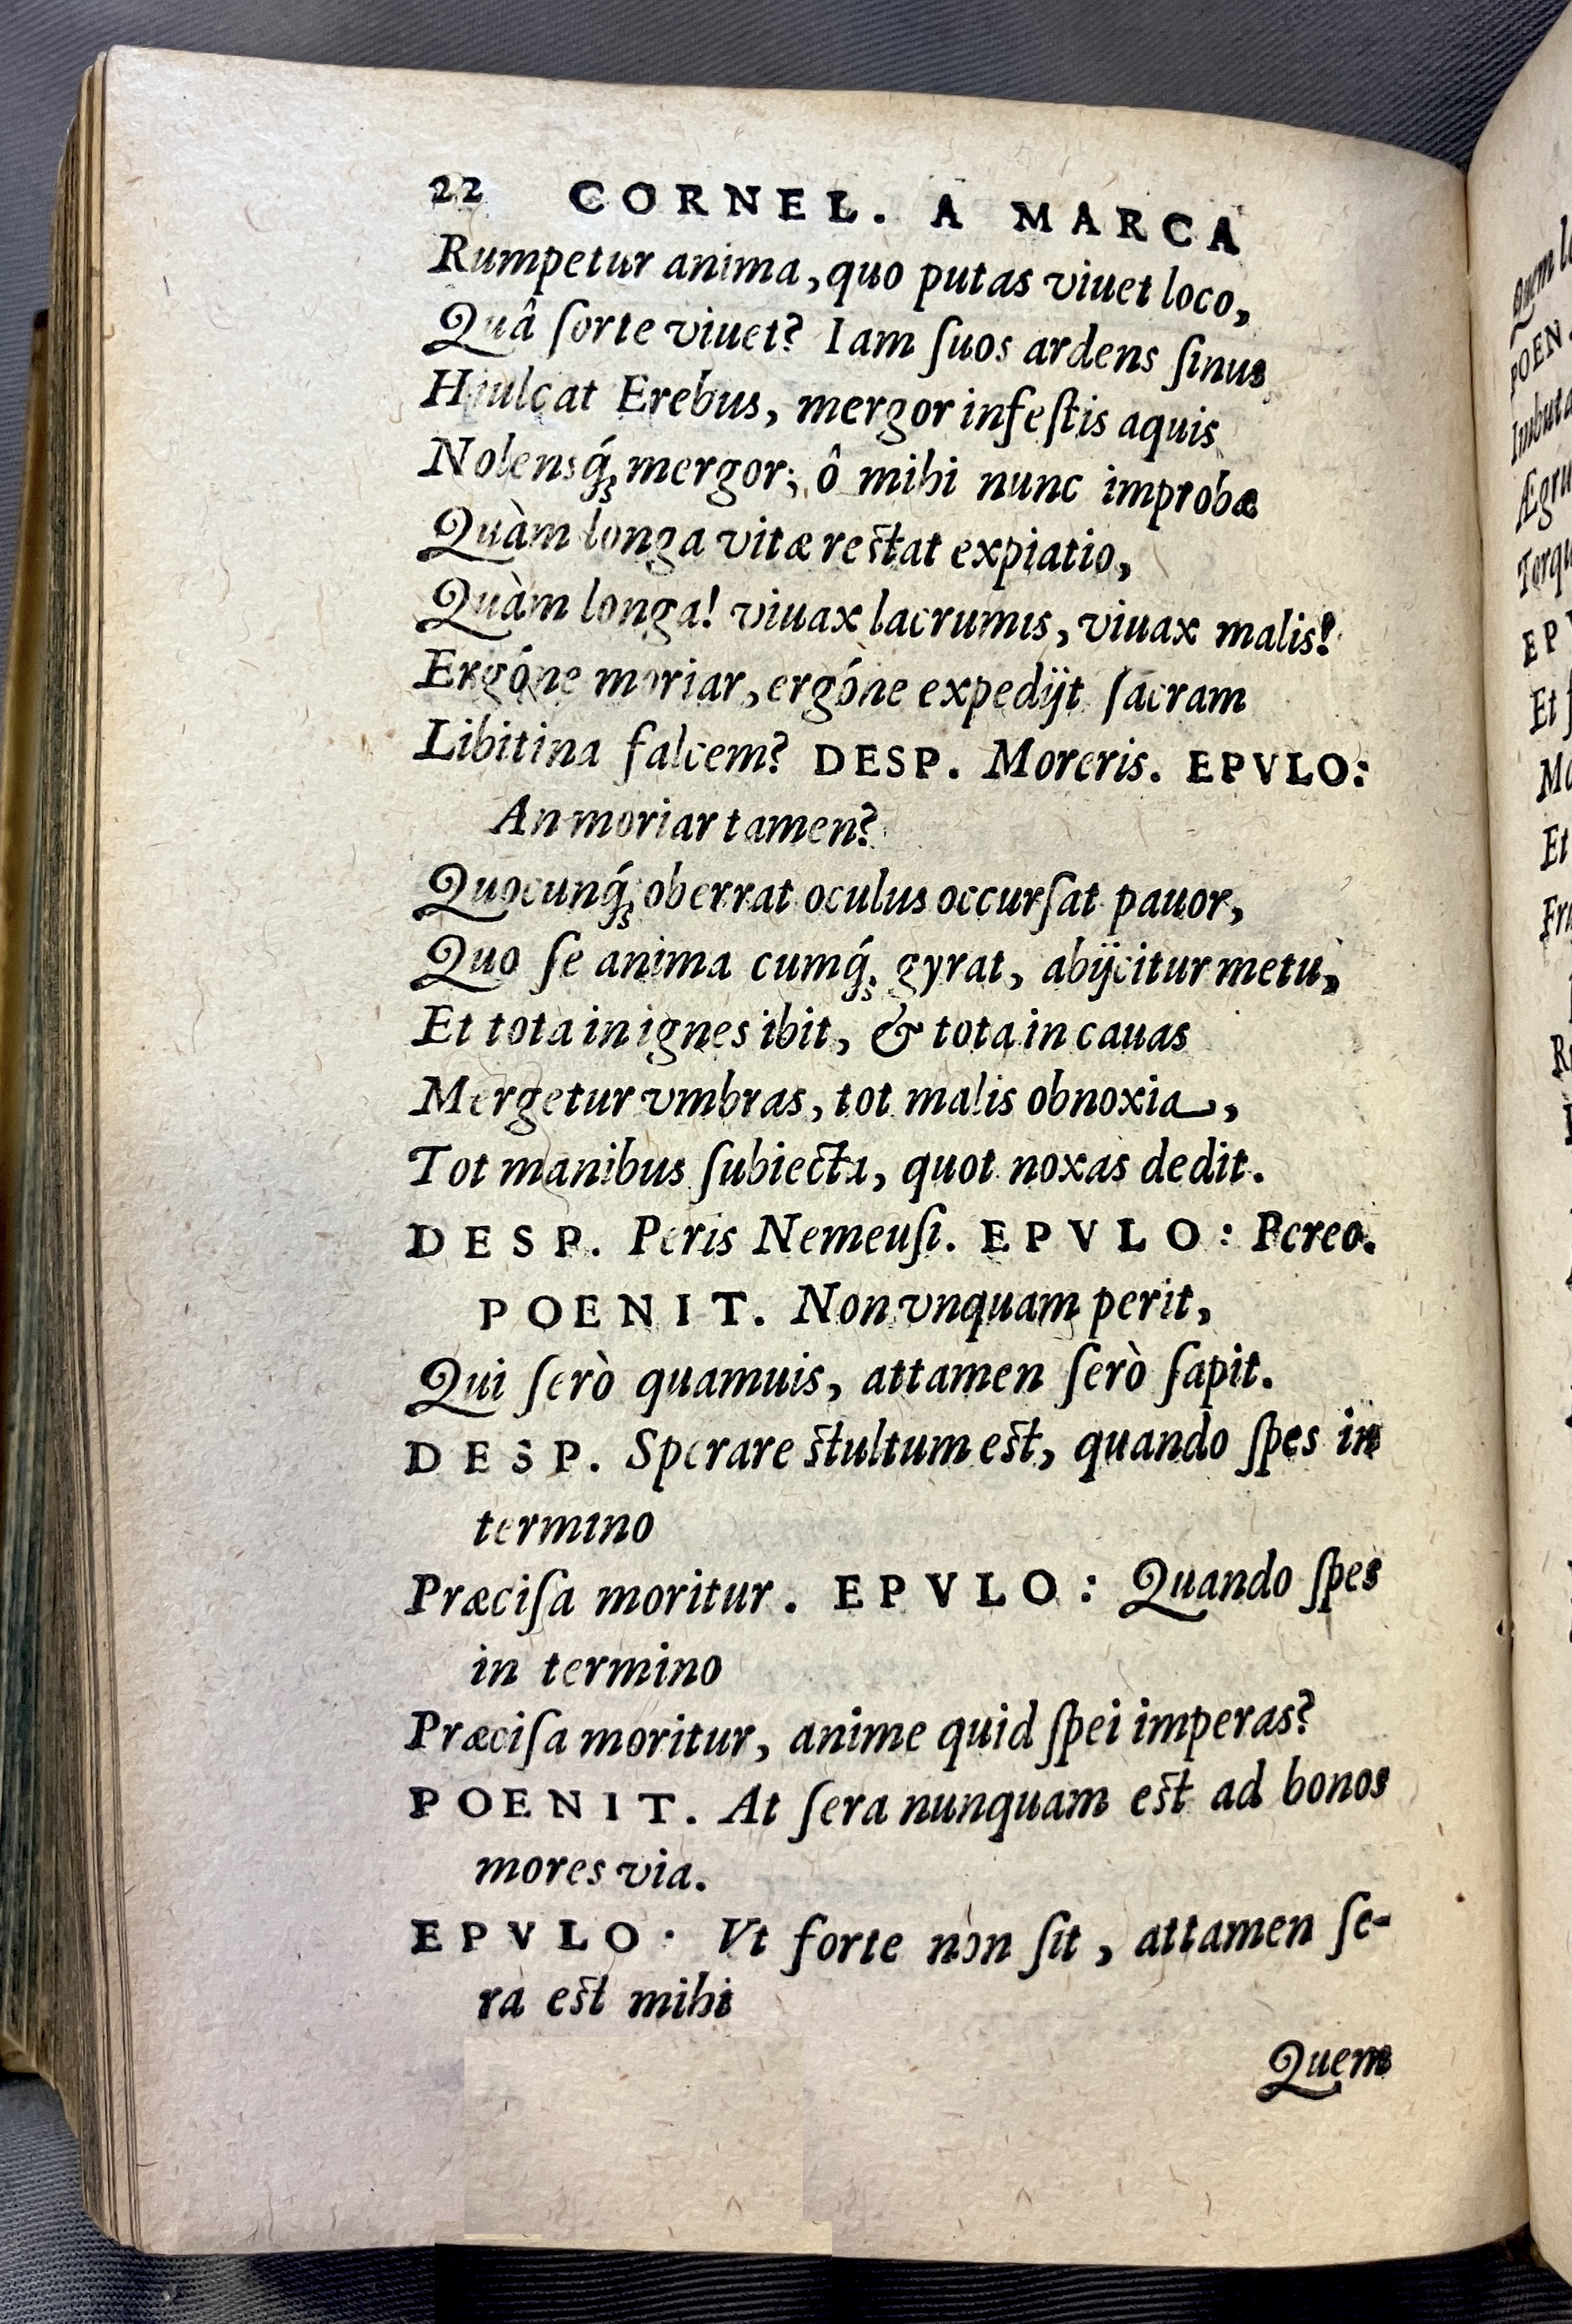 22 CORNEL. A MARCA
Rumpetur anima, quo putas viuet loco,
Quâ ſorte viuet? Iam ſuos ardens ſinus
Hiulcat Erebus, mergor infeſtis aquis
Nolensq́; mergor; ô mihi nunc improbæ
Quàm longa vitæ reſtat expiatio,
Quàm longa! viuax lacrumis, viuax malis!
Ergóne moriar, ergóne expedijt ſacram
Libitina falcem? DESP. Moreris. EPVLO:
An moriar tamen?
Quocunq́; oberrat oculus occurſat pauor,
Quo ſe anima cumq́; gyrat, abijcitur metu,
Et tota in ignes ibit, & tota in cauas
Mergetur vmbras, tot malis obnoxia,
Tot manibus ſubiecta, quot noxas dedit.
DESP. Peris Nemeuſi. EPVLO: Pereo.
POENIT. Non vnquam perit,
Qui ſerò quamuis, attamen ſerò ſapit.
DESP. Sperare ſtultum eſt, quando ſpes in
termino
Præciſa moritur. EPVLO: Quando ſpes
in termino
Præciſa moritur, anime quid ſpei imperas?
POENIT. At ſera nunquam eſt ad bonos
mores via.
EPVLO: Vt forte non ſit, attamen ſe-
ra eſt mihi
Quem